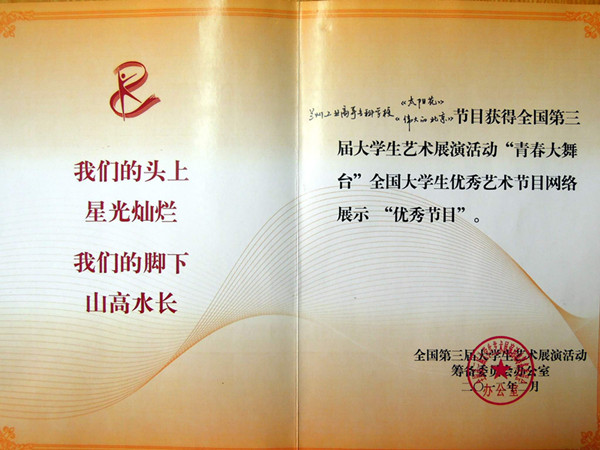 我们的头上
星光灿烂
我们的脚下
山高水长
《太阳花》
兰州工业高等专科学校《伟大的北京》节目获得全国第三
届大学生艺术展演活动“青春大舞
台”全国大学生优秀艺术节目网络
展示 “优秀节目”。
全国第三届大学生艺术展演活动
筹备委员会办公室
二〇一 年 月
办公室